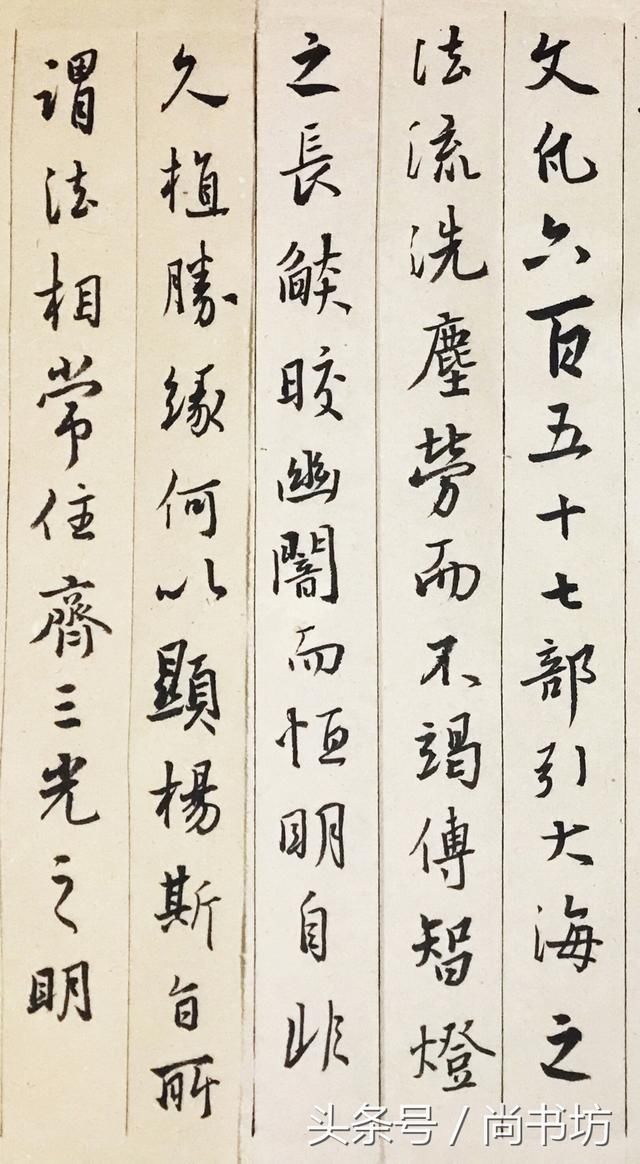 文凡六百五十七部引大海之
法流洗塵勞而不竭傳智燈
之長皎幽闇而恒明自非
久植勝緣何以顯楊斯旨所
謂法相常住齊三光之明
头条号 / 尚书坊